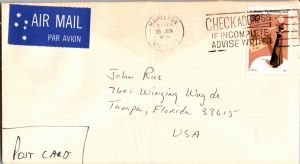 AIR MAIL
PAR AVION
HAMILTON
19 JUN
CHECK ADDRESS
IF INCOMPLETE
ADVISE WRITER
John Rice
7601 Winging Way dr.
Tampa, Florida 33615
USA
POST CARD